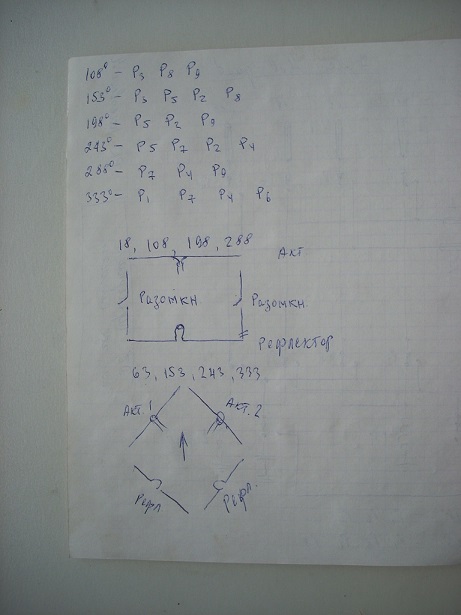 108° – P3 P8 P9
153° – P3 P5 P2 P8
198° – P5 P2 P9
243° – P5 P7 P2 P4
288° – P7 P4 P9
333° – P1 P7 P4 P6
18, 108, 198, 288
Акт
Разомкн Разомкн
Рефлектор
63, 153, 243, 333
Акт. 1 Акт. 2
Рефл Рефл.